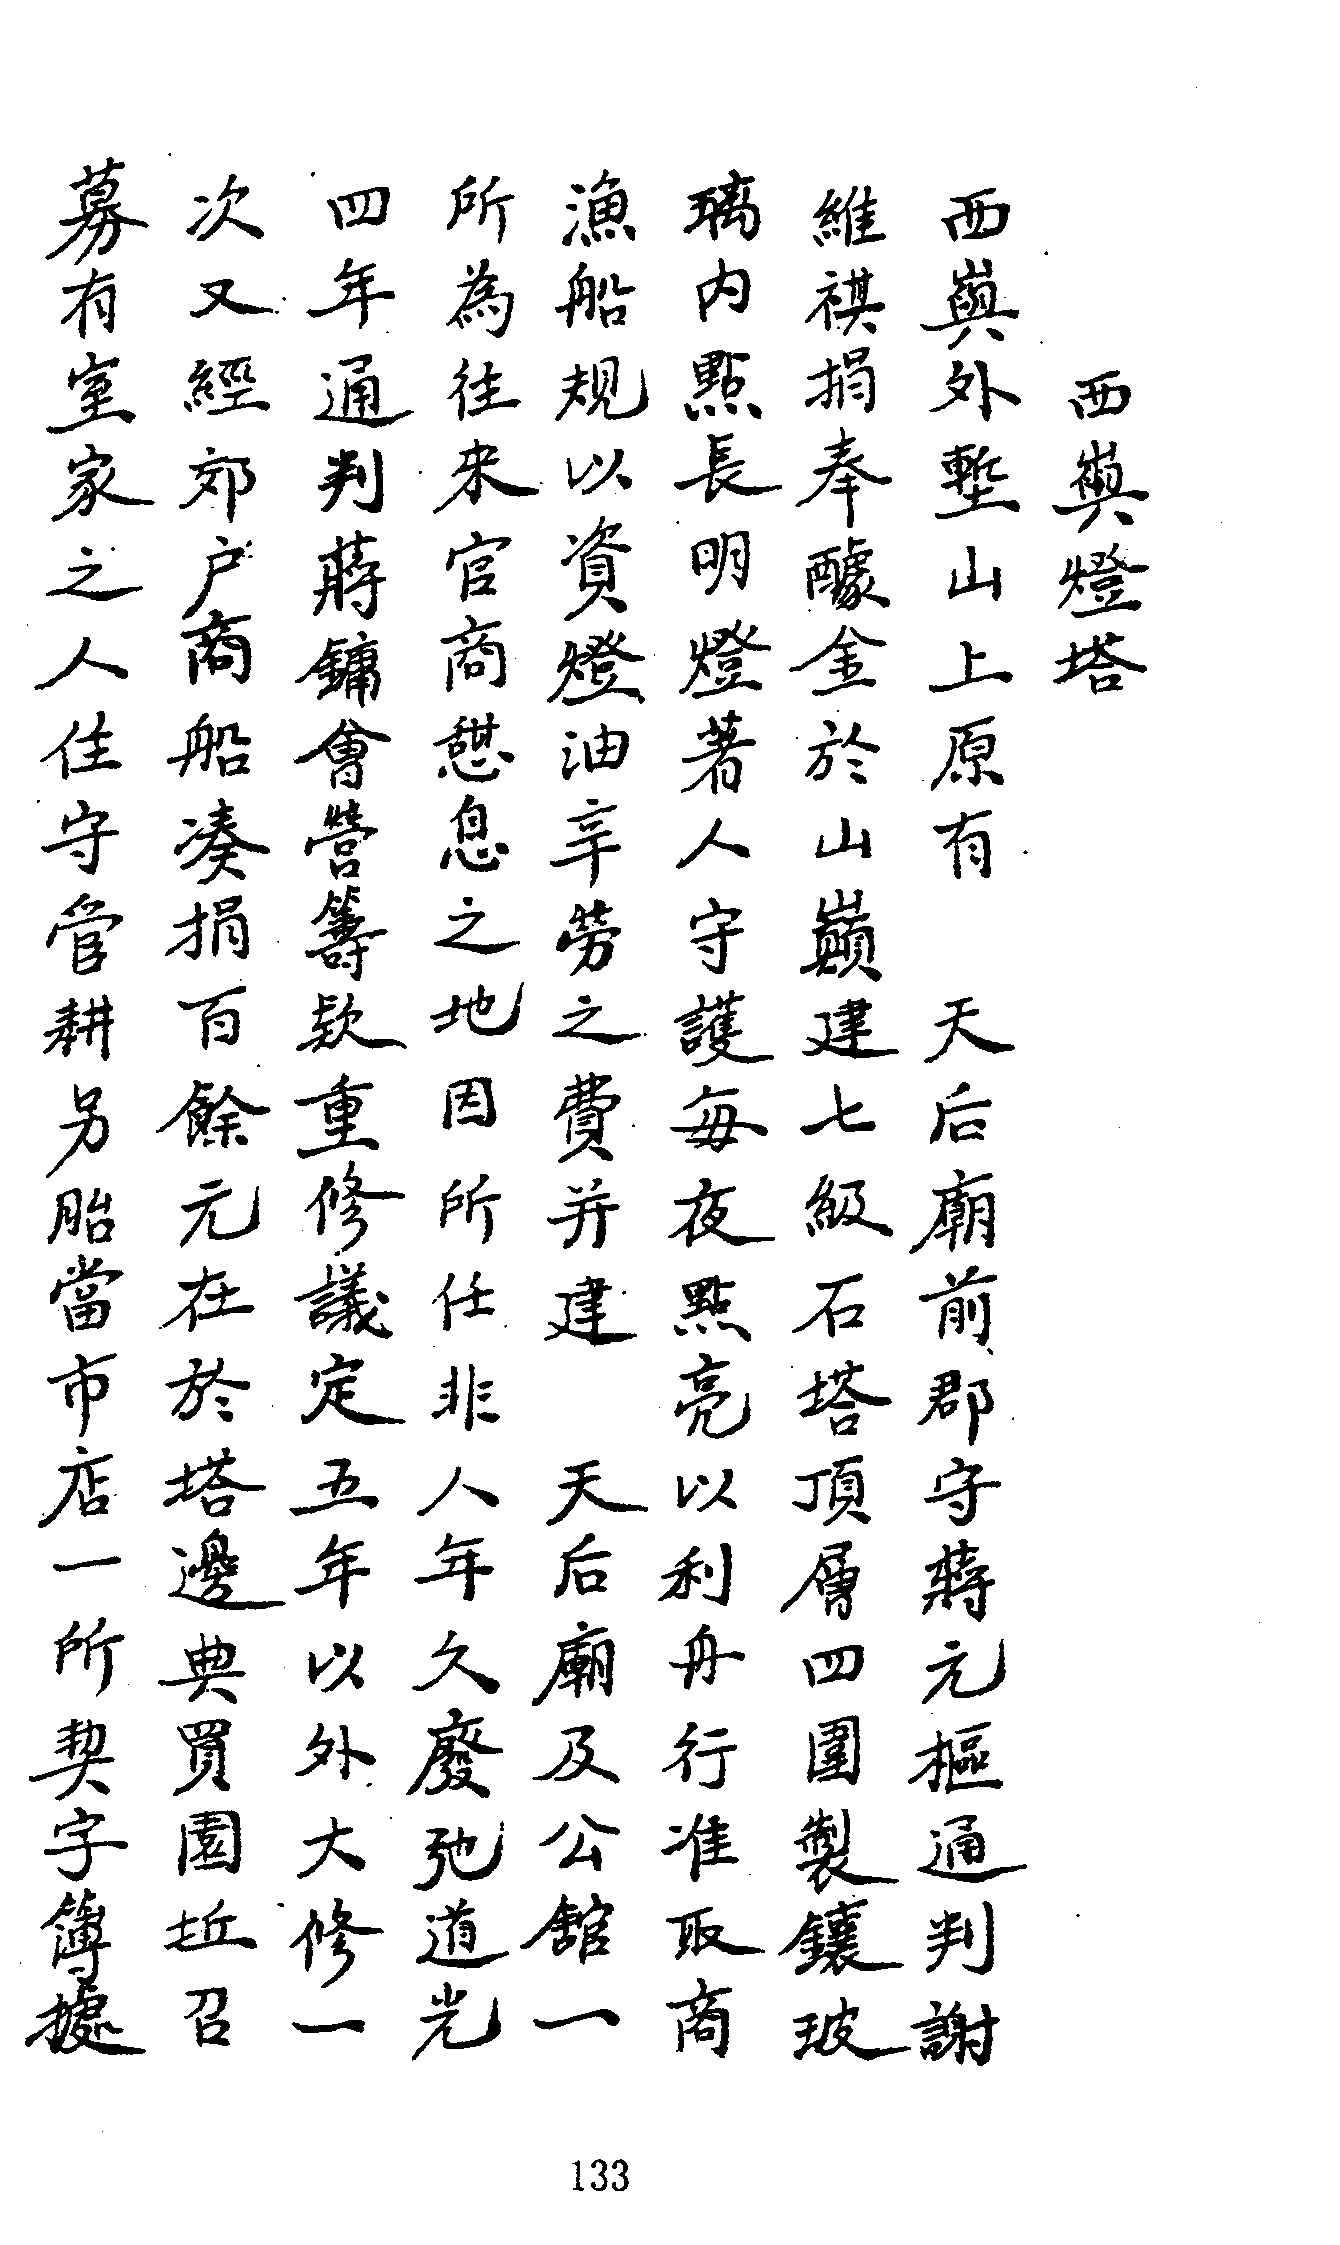 西嶼燈塔
西嶼外塹山上原有　天后廟前郡守蔣元樞通判謝
維祺捐奉醵金於山巔建七級石塔頂層四圍製鑲玻
璃內點長明燈著人守護每夜點亮以利舟行准取商
漁船規以資燈油辛勞之費并建　天后廟及公館一
所為往來官商憇息之地因所任非人年久廢弛道光
四年通判蔣鏞會營籌款重修議定五年以外大修一
次又經郊户商船凑捐百餘元在於塔邊典買園坵召
募有室家之人住守管耕另胎當市店一所契字簿據
133